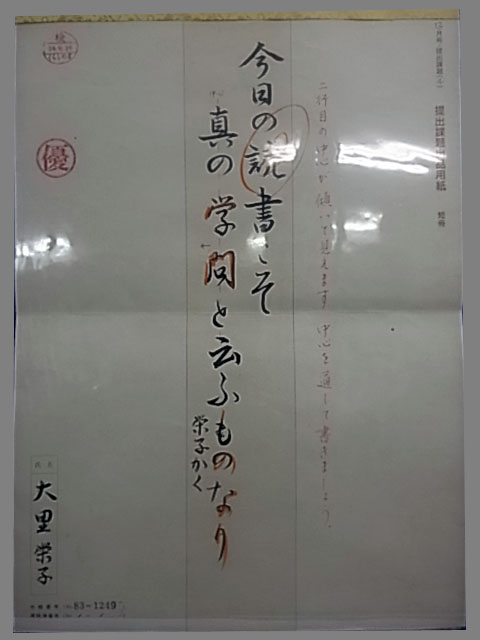 提出課題出品用紙
短冊
二行目の中心が傾いて見えます。中心を通して書きましょう。
今日の読書こそ
真の学問と云ふものなり
栄子かく
優
氏名
大里栄子
83-1249